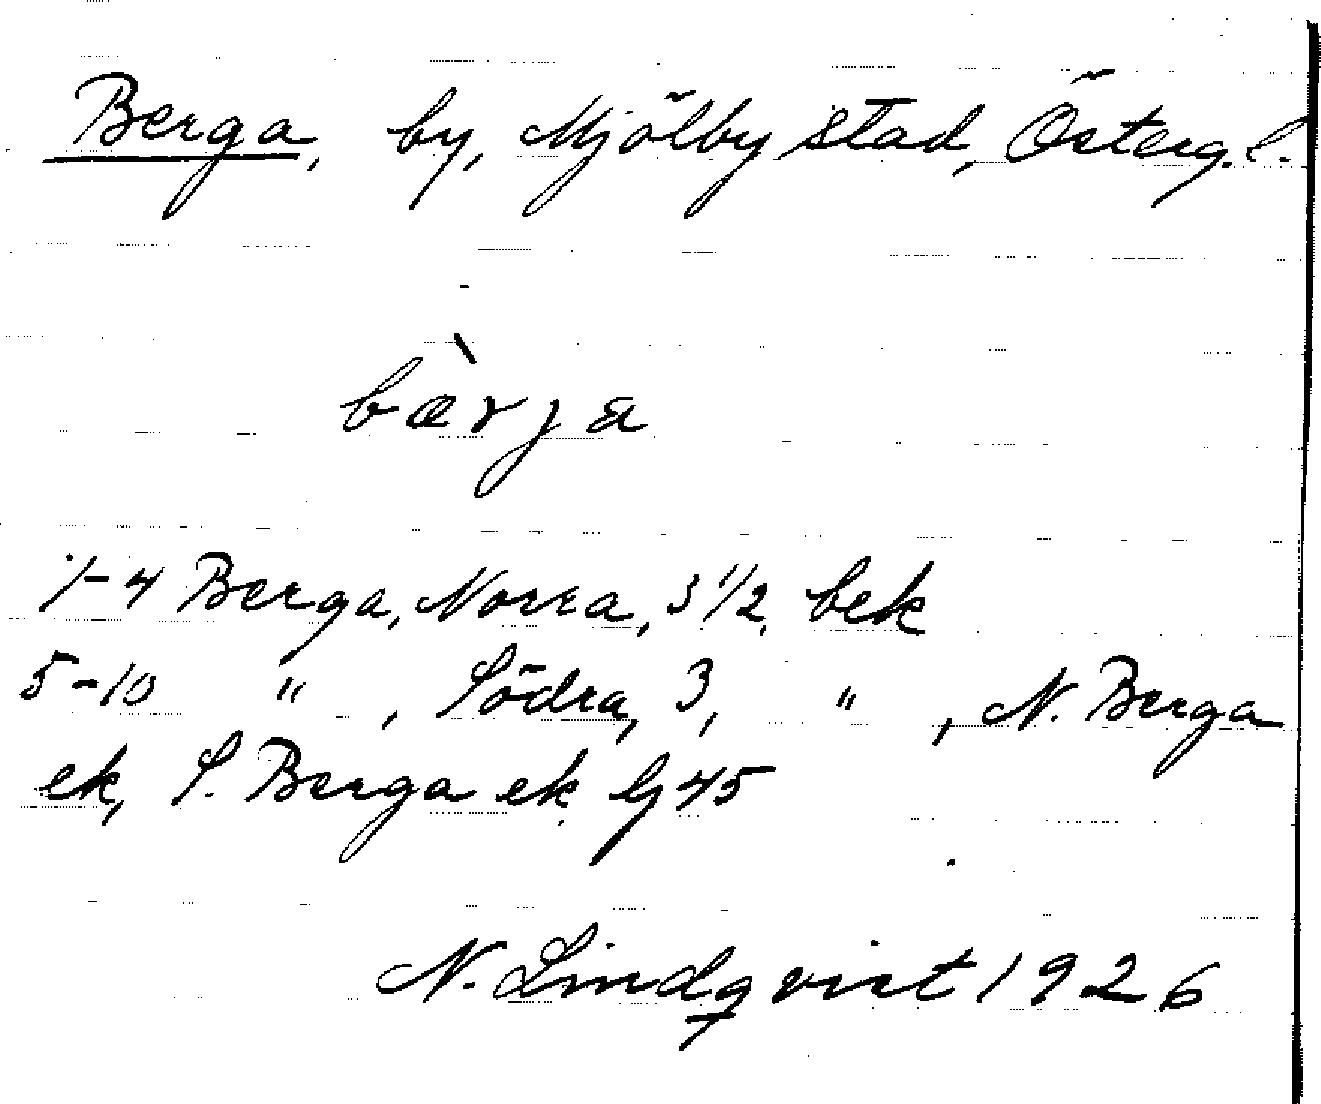 Berga, by, Mjölby stad, Österg. l.
bæ̀rja
1-4 Berga, Norra, 3 1/2, bek
5-10 " , Södra, 3, " , N. Berga
ek, S. Berga ek lj 45
N. Lindqvist 1926